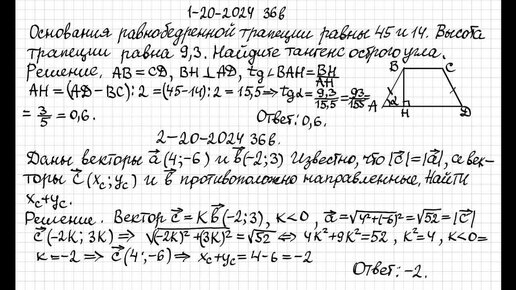 1-20-2024 36в
Основания равнобедренной трапеции равны 45 и 14. Высота
трапеции равна 9,3. Найдите тангенс острого угла.
Решение. AB = CD, BH ⊥ AD, tg∠BAH = BH/AH
AH = (AD - BC) : 2 = (45-14) : 2 = 15,5 ⇒ tgα = 9,3/15,5 = 93/155 =
= 3/5 = 0,6. Ответ: 0,6.
B C
A α H D
2-20-2024 36в.
Даны векторы a⃗(4;-6) и b⃗(-2;3) Известно, что |c⃗| = |a⃗|, а век-
торы c⃗(xc; yc) и b⃗ противоположно направленные, Найти
xc+yc.
Решение. Вектор c⃗ = k b⃗(-2;3), k<0, a⃗ = √4²+(-6)² = √52 = |c⃗|
c⃗(-2k; 3k) ⇒ √(-2k)²+(3k)² = √52 ⇔ 4k²+9k²=52, k²=4, k<0 ⇒
k = -2 ⇒ c⃗(4;-6) ⇒ xc+yc = 4-6 = -2
Ответ: -2.